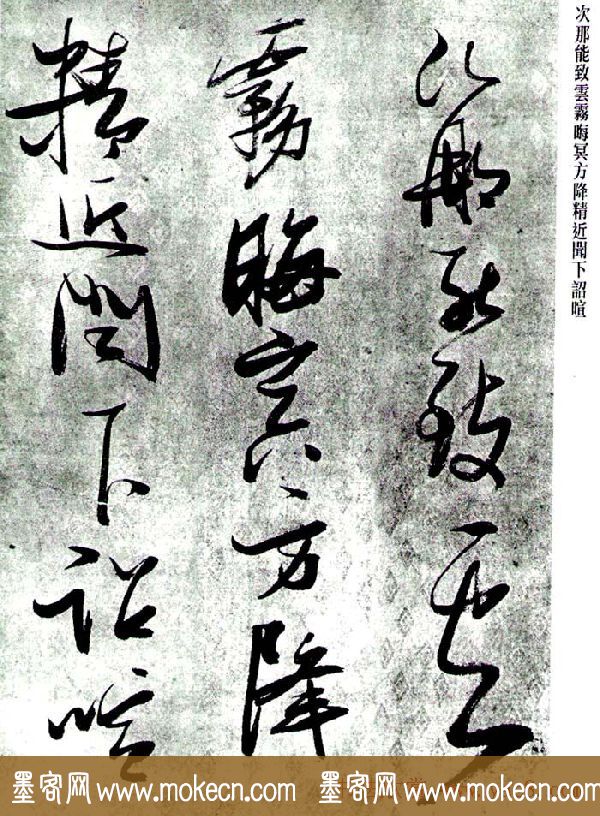 次那能致雲霧晦冥方降精近聞下詔喧
次那能致雲
霧晦冥方降
精近聞下詔喧
墨客网 www.mokecn.com 墨客网 www.mokecn.com